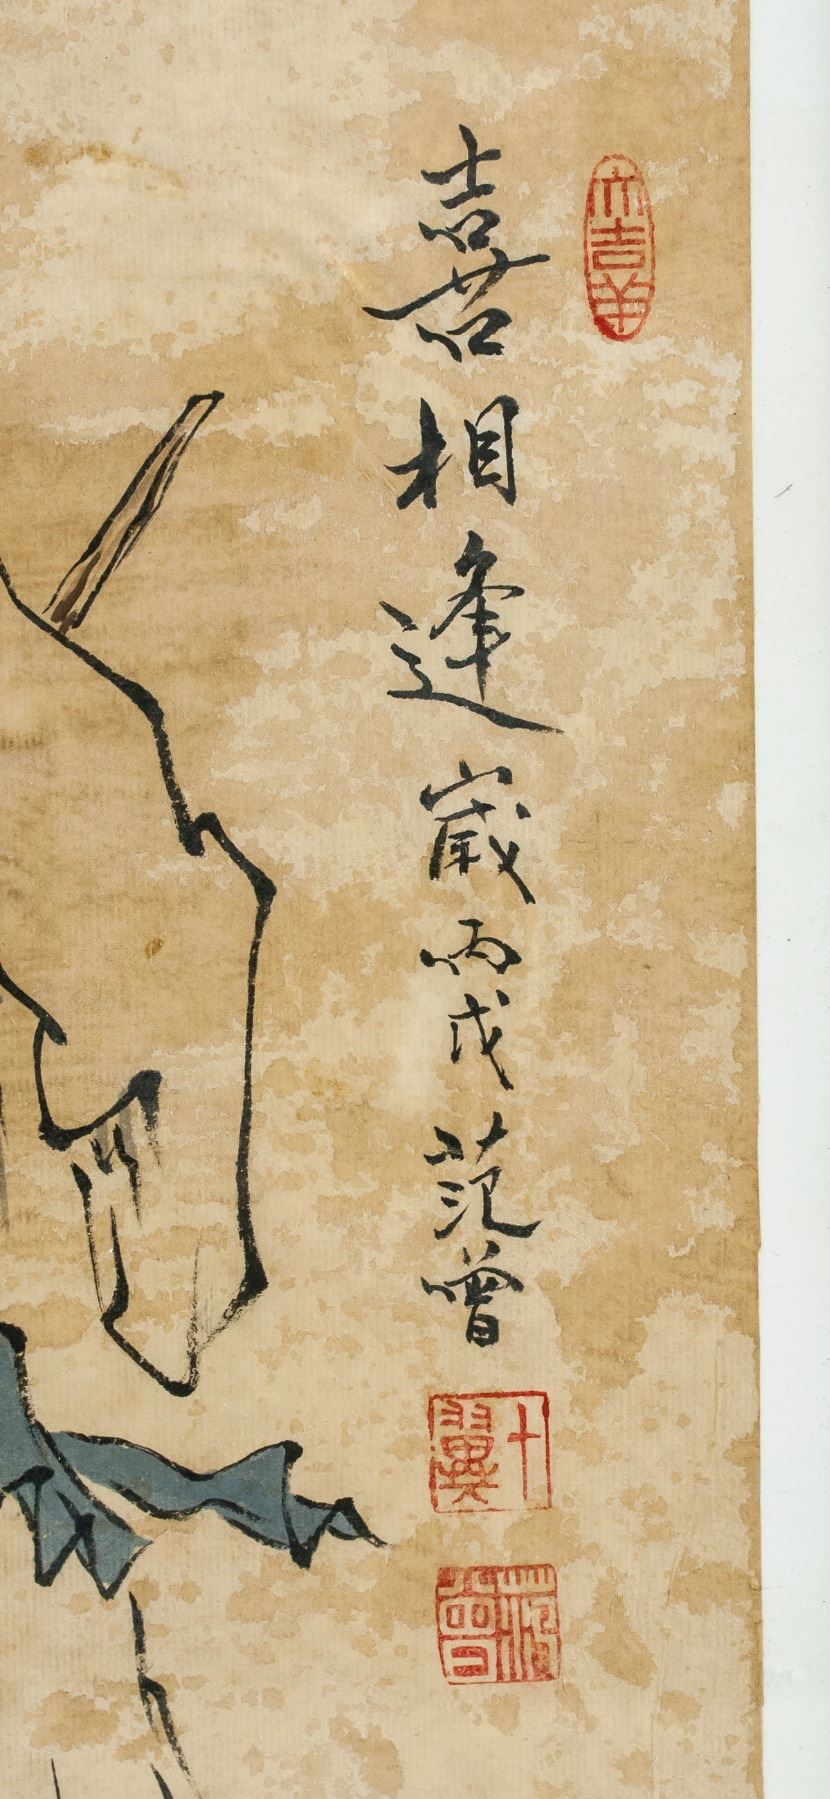 大吉羊
喜相逢歲丙戌范曾
十翼
范曾